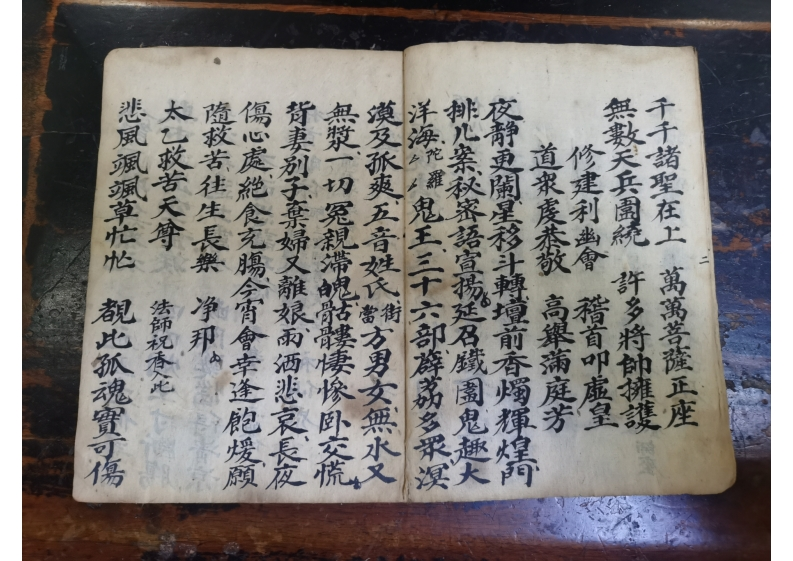 千千諸聖在上 萬萬菩薩正座
無數天兵圍繞 許多將帥擁護
修建利幽會 稽首叩虛皇
道衆虔恭敬 高舉滿庭芳
夜靜更闌星移斗轉壇前香燭輝煌門
排几案秘密語宣揚延召鐵圍鬼趣大
洋海陀羅鬼王三十六部薜荔多衆溟
漠及孤爽五音姓氏當街方男女無水又
無漿一切冤親滯魄白骨骷髏悽慘卧交慌
背妻別子棄婦又離娘雨洒悲哀長夜
傷心處絶食充腸今宵會幸逢飽煖願
隨救苦往生長樂 净邦
太乙救苦天尊 法師祝香入此
悲風颯颯草忙忙 覩此孤魂實可傷
二